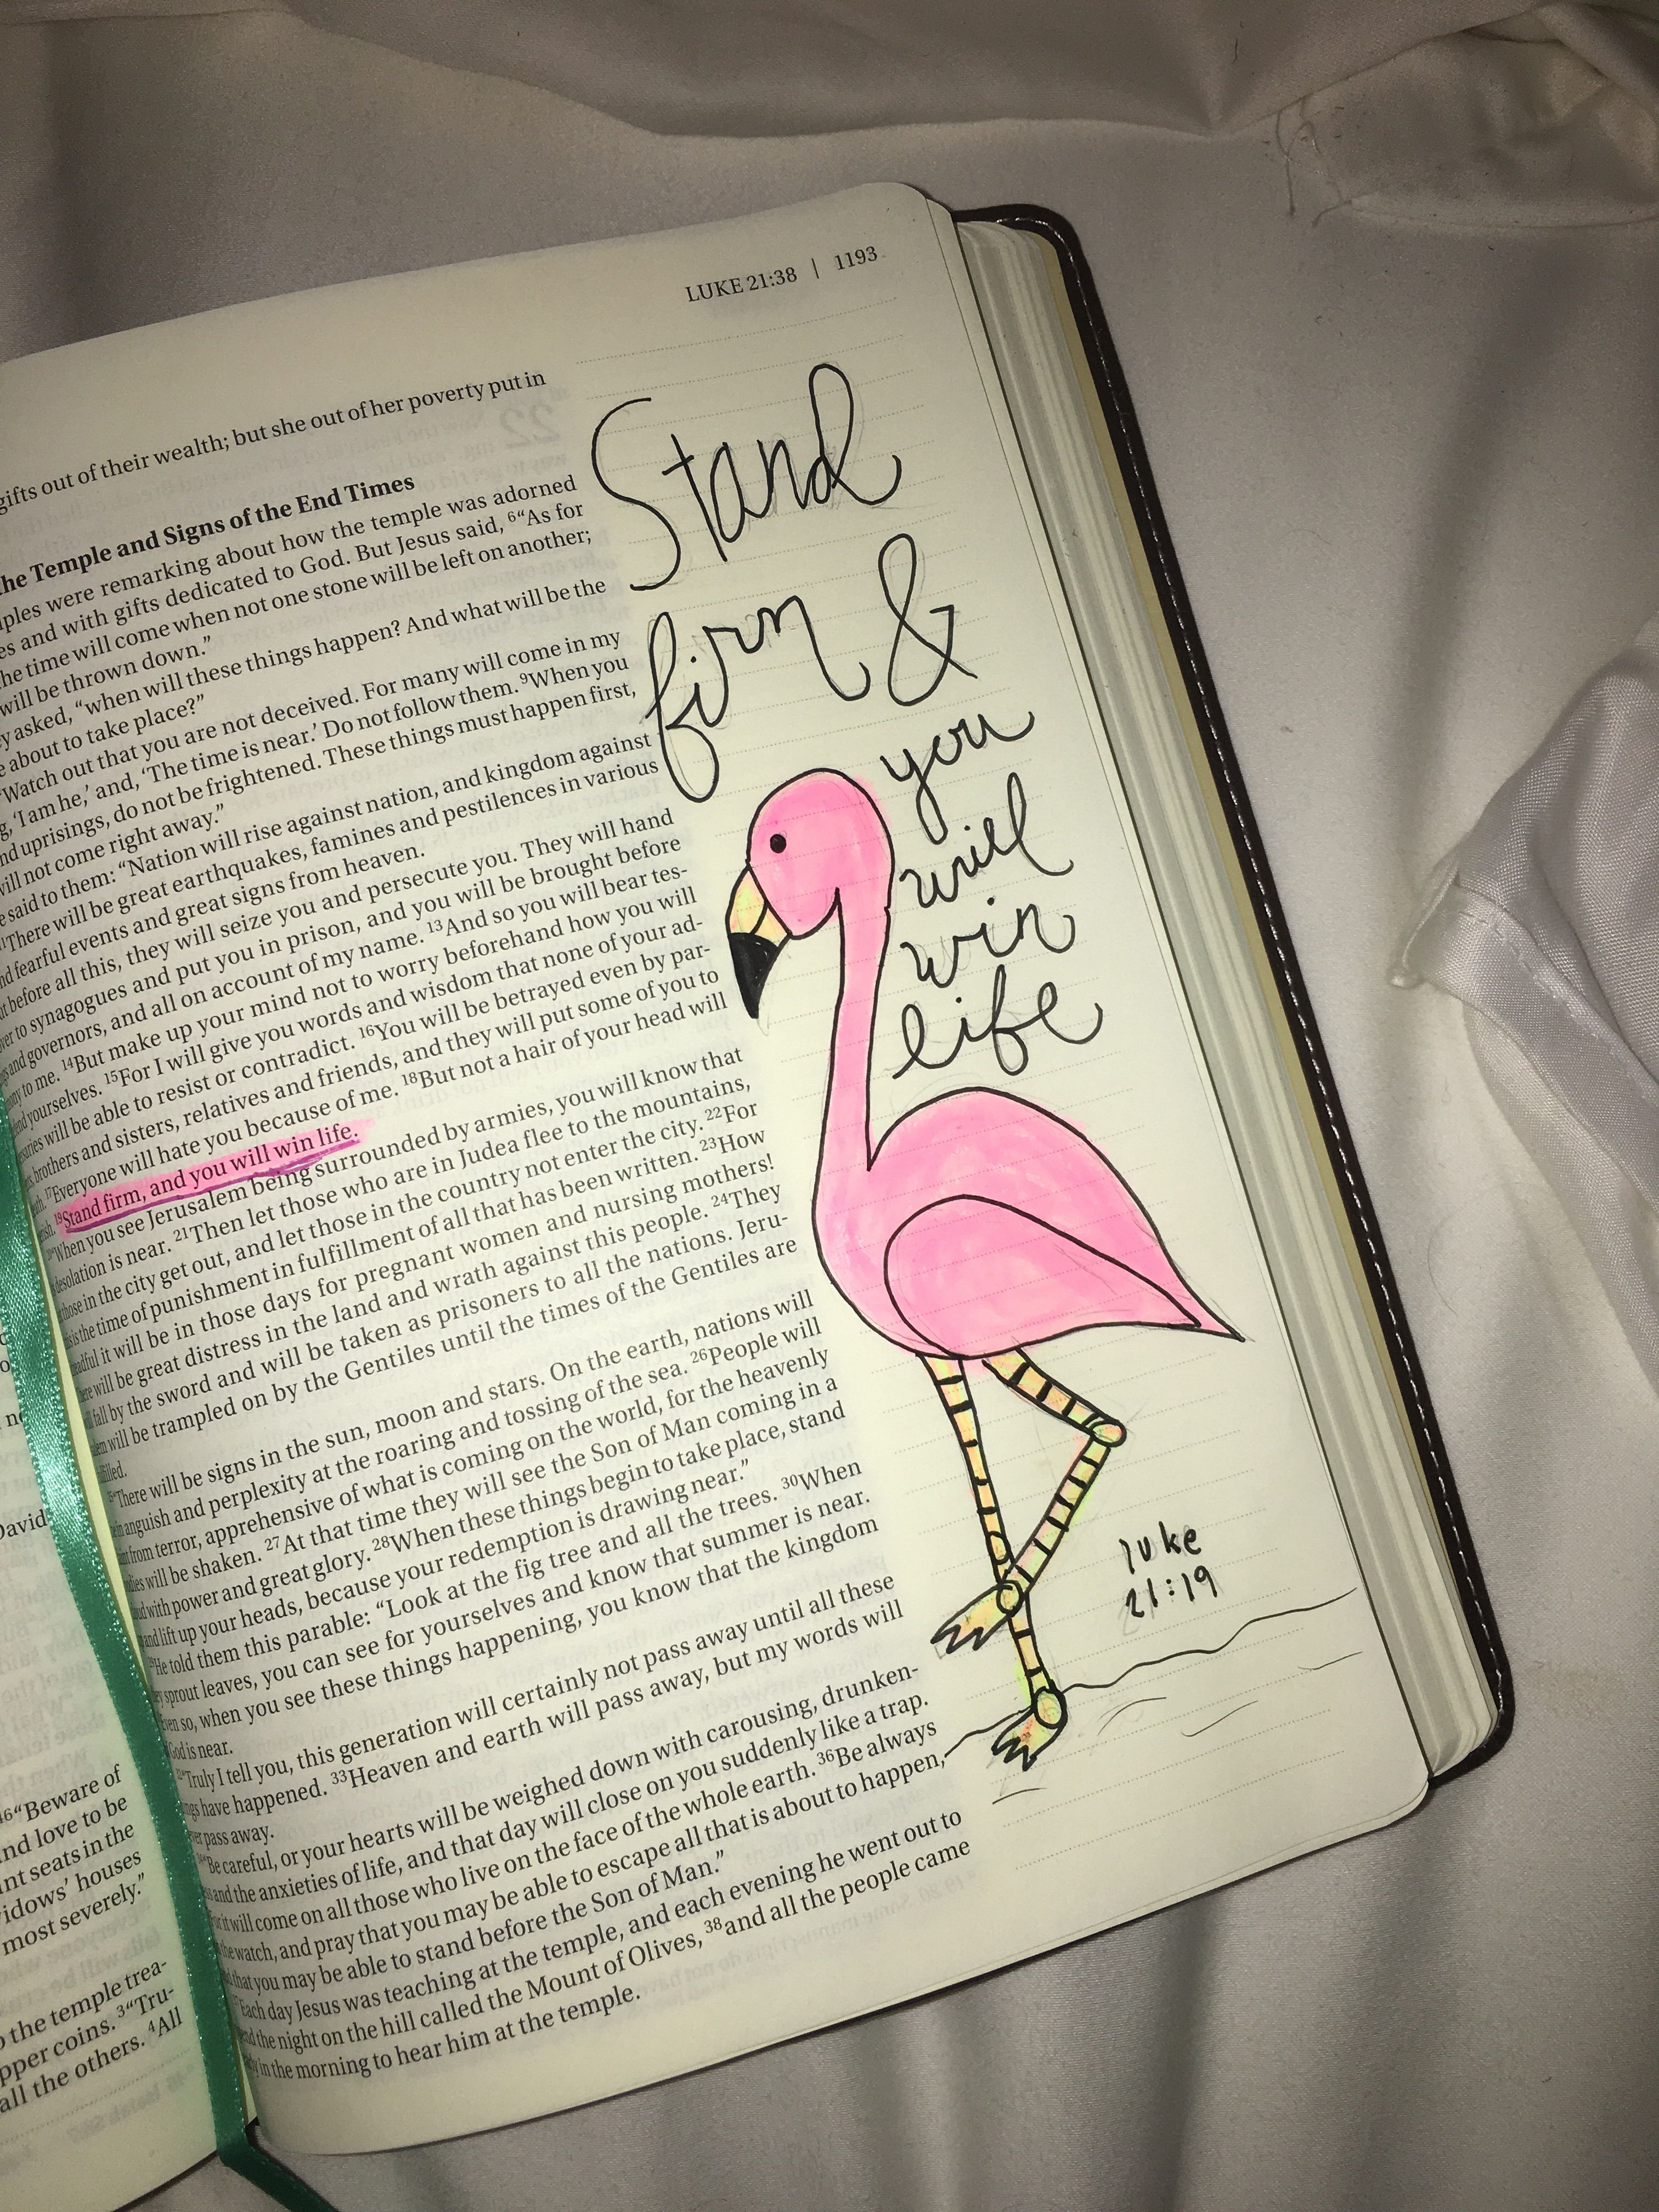 LUKE 21:38 | 1193
gifts out of their wealth; but she out of her poverty put in
the Temple and Signs of the End Times
were remarking about how the temple was adorned
and with gifts dedicated to God. But Jesus said, 6“As for
the time will come when not one stone will be left on another;
will be thrown down.”
asked, “when will these things happen? And what will be the
about to take place?”
“Watch out that you are not deceived. For many will come in my
‘I am he,’ and, ‘The time is near.’ Do not follow them. 9When you
uprisings, do not be frightened. These things must happen first,
will not come right away.”
said to them: “Nation will rise against nation, and kingdom against
11There will be great earthquakes, famines and pestilences in various
and fearful events and great signs from heaven.
before all this, they will seize you and persecute you. They will hand
over to synagogues and put you in prison, and you will be brought before
and governors, and all on account of my name. 13And so you will bear tes-
to me. 14But make up your mind not to worry beforehand how you will
yourselves. 15For I will give you words and wisdom that none of your ad-
will be able to resist or contradict. 16You will be betrayed even by par-
brothers and sisters, relatives and friends, and they will put some of you to
17Everyone will hate you because of me. 18But not a hair of your head will
19Stand firm, and you will win life.
“When you see Jerusalem being surrounded by armies, you will know that
desolation is near. 21Then let those who are in Judea flee to the mountains,
those in the city get out, and let those in the country not enter the city. 22For
is the time of punishment in fulfillment of all that has been written. 23How
it will be in those days for pregnant women and nursing mothers!
will be great distress in the land and wrath against this people. 24They
fall by the sword and will be taken as prisoners to all the nations. Jeru-
will be trampled on by the Gentiles until the times of the Gentiles are
“There will be signs in the sun, moon and stars. On the earth, nations will
anguish and perplexity at the roaring and tossing of the sea. 26People will
from terror, apprehensive of what is coming on the world, for the heavenly
will be shaken. 27At that time they will see the Son of Man coming in a
with power and great glory. 28When these things begin to take place, stand
and lift up your heads, because your redemption is drawing near.”
He told them this parable: “Look at the fig tree and all the trees. 30When
sprout leaves, you can see for yourselves and know that summer is near.
so, when you see these things happening, you know that the kingdom
God is near.
“Truly I tell you, this generation will certainly not pass away until all these
have happened. 33Heaven and earth will pass away, but my words will
pass away.
“Be careful, or your hearts will be weighed down with carousing, drunken-
and the anxieties of life, and that day will close on you suddenly like a trap.
it will come on all those who live on the face of the whole earth. 36Be always
watch, and pray that you may be able to escape all that is about to happen,
that you may be able to stand before the Son of Man.”
Each day Jesus was teaching at the temple, and each evening he went out to
the night on the hill called the Mount of Olives, 38and all the people came
in the morning to hear him at the temple.
Stand
firm &
you
will
win
life
luke
21:19
David
46“Beware of
and love to be
seats in the
houses
most severely.”
the temple trea-
coins. 3“Tru-
all the others. 4All